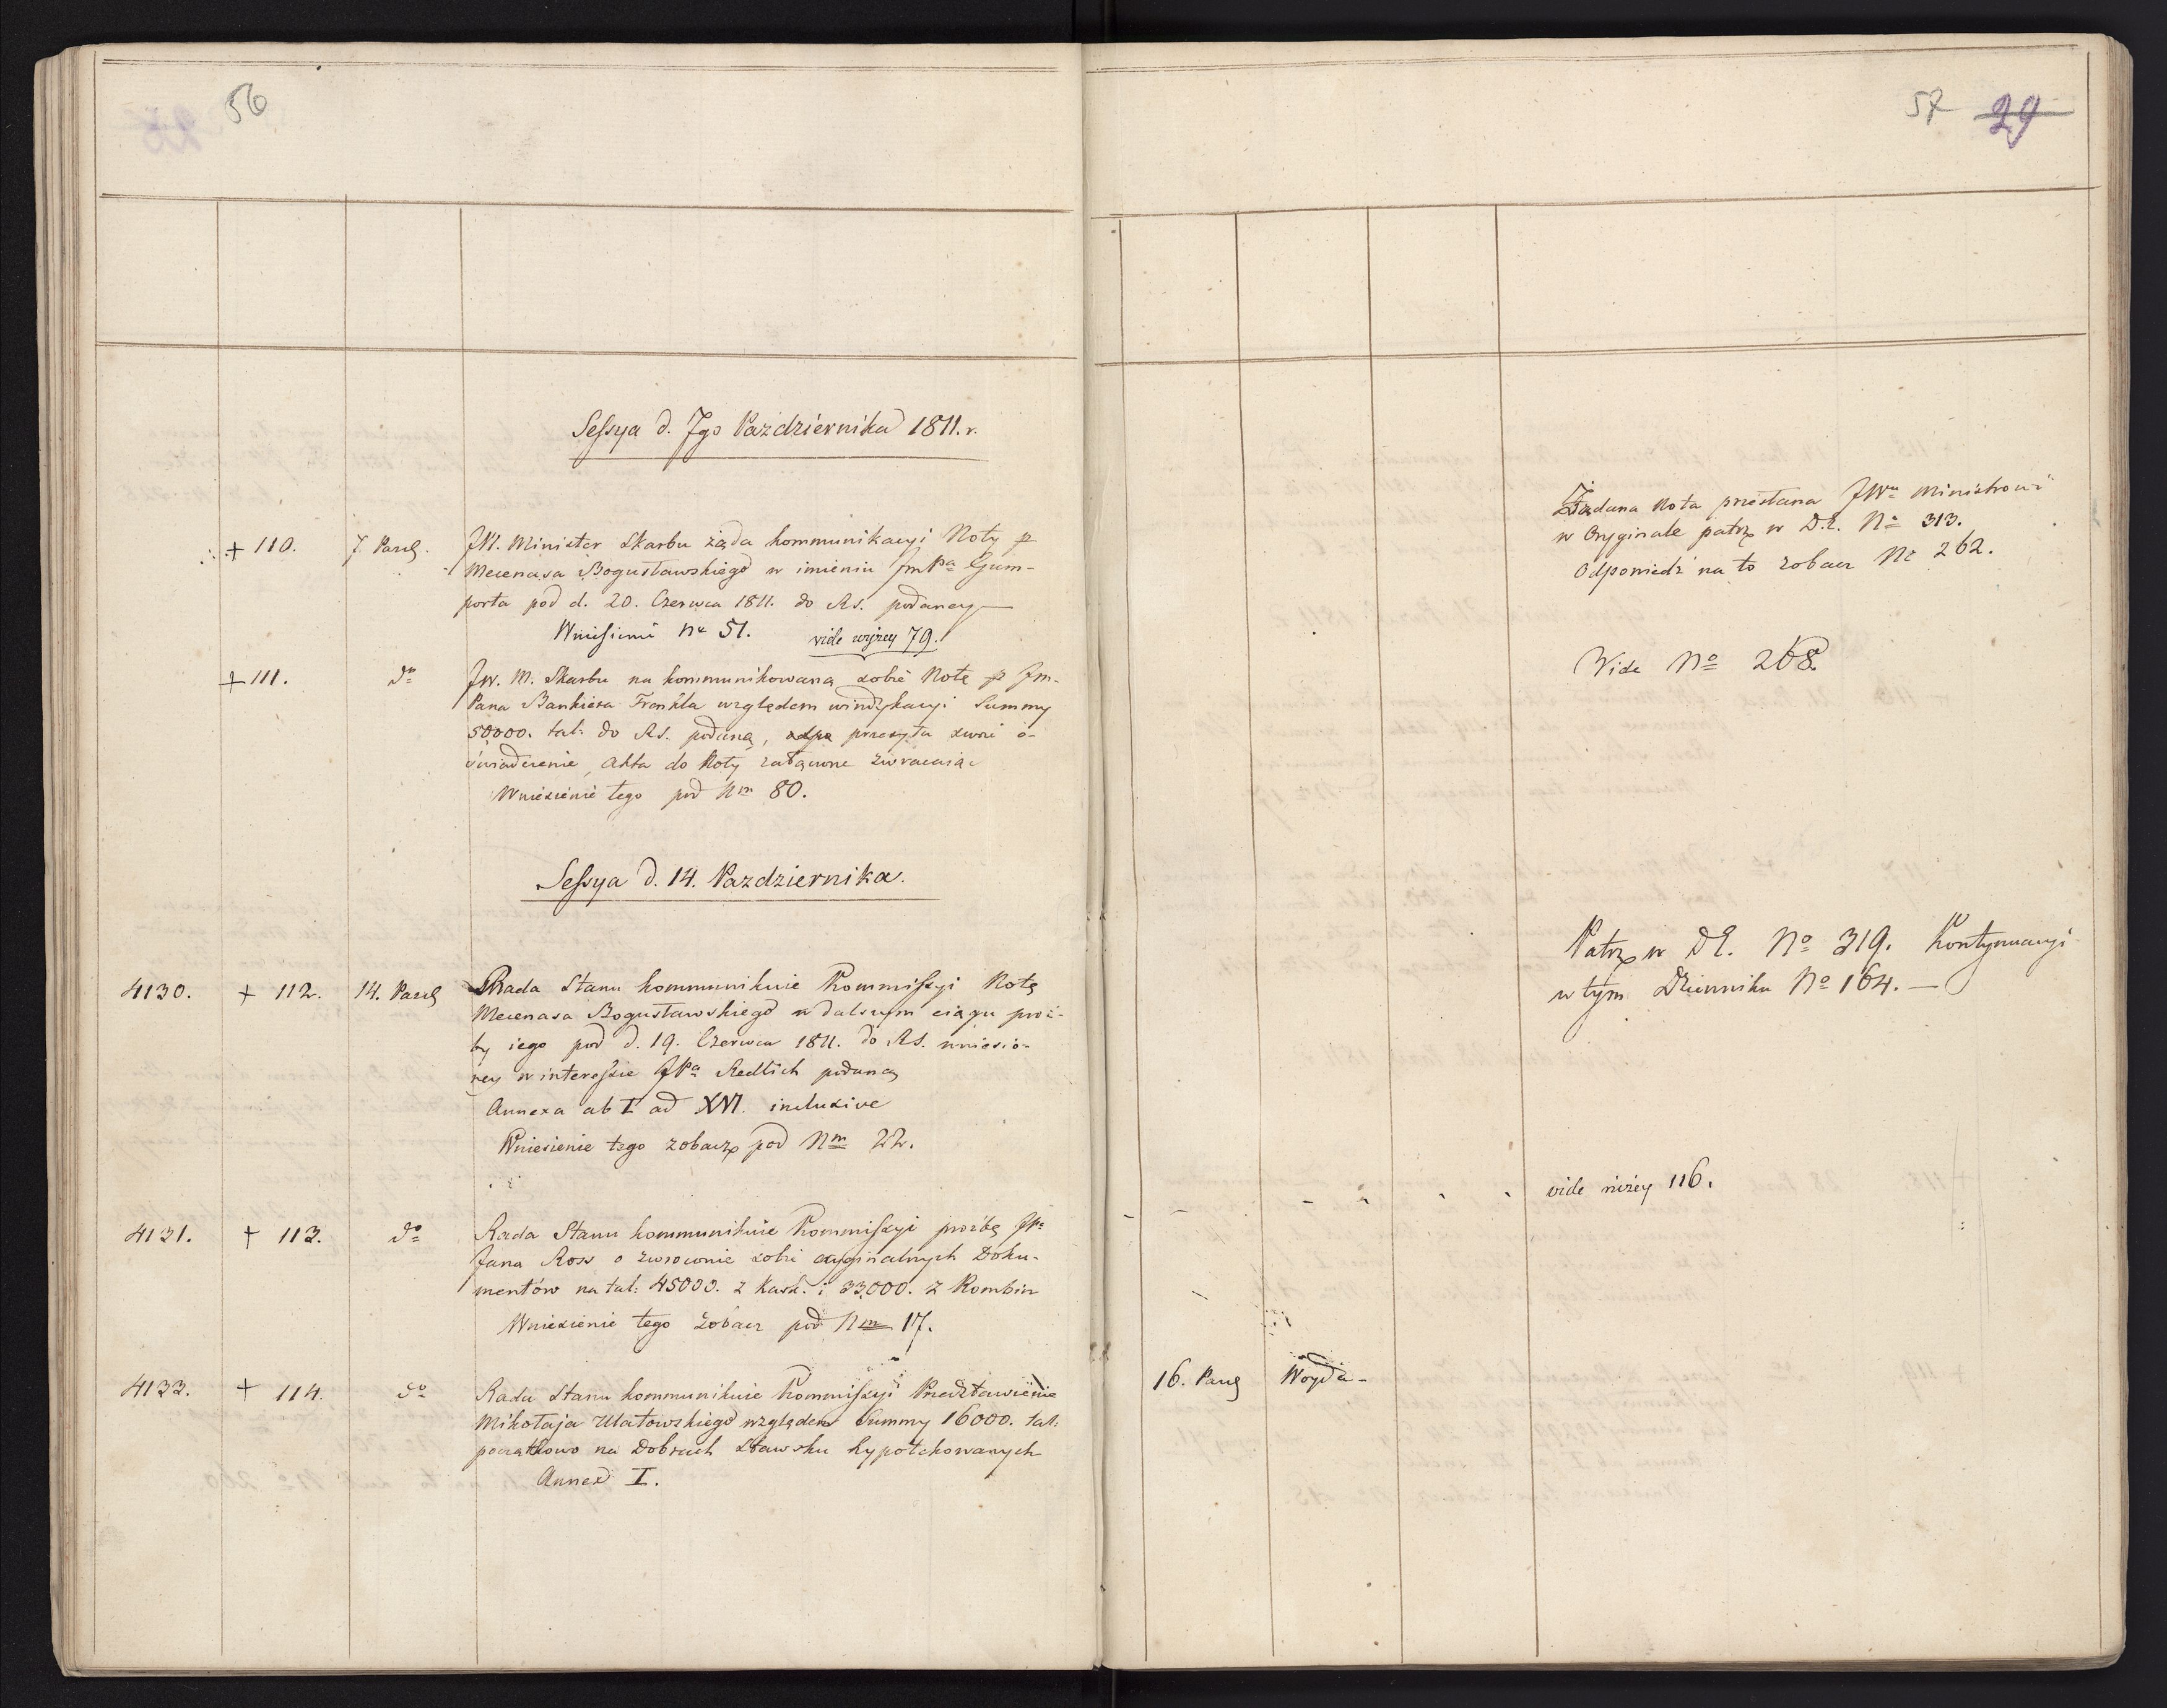 56
Sessya d. 7go Pazdziernika 1811. r.
+ 110. 7. Pazd. JW. Minister Skarbu żąda kommunikacyi Noty p
Mecenasa Bogusławskiego w imieniu JmPa Gum-
porta pod d. 20. Czerwca 1811. do RS. podaney
Wniesienie Nr 51. vide wyżey 79.
+ 111. do JW. M. Skarbu na kommunikowaną sobie Notę p Jm-
Pana Bankiera Fraenkla względem windykacyi Summy
50000. tal. do RS. podaną, przesyła swoie o-
świadczenie, akta do Noty załączone zwracaiąc
Wniesienie tego pod Nm 80.
Sessya d. 14. Pazdziernika.
4130. + 112. 14. Pazd Rada Stanu kommunikuie Kommissyi Notę
Mecenasa Bogusławskiego w dalszym ciągu proź-
by iego pod d. 19. Czerwca 1811. do RS. wniesio-
ney w interessie JPa Redlich podaną
Annexa ab I ad XVI. inclusive
Wniesienie tego zobacz pod Nm 22.
4131. + 113. do Rada Stanu kommunikuie Kommissyi proźbę JPa
Jana Ross o zwrocenie sobie oryginalnych Doku-
mentów na tal: 45000. z Kask. i 33,000. z Kombin
Wniesienie tego zobacz pod Nm 17.
4133. + 114. do Rada Stanu kommunikuie Kommissyi Przedstawienie
Mikołaja Ulatowskiego względem Summy 16000. tal:
początkowo na Dobrach Sławsku hypotekowanych
Annex I.
57 29
Żądana Nota przesłana JWu Ministrowi
w Oryginale patrz w D.E. No 313.
Odpowiedź na to zobacz No 262.
Vide No 268.
Patrz w DE. No 319. Kontynuacyi
w tym Dzienniku No 164. —
vide niżey 116.
16. Pazd Woyda -